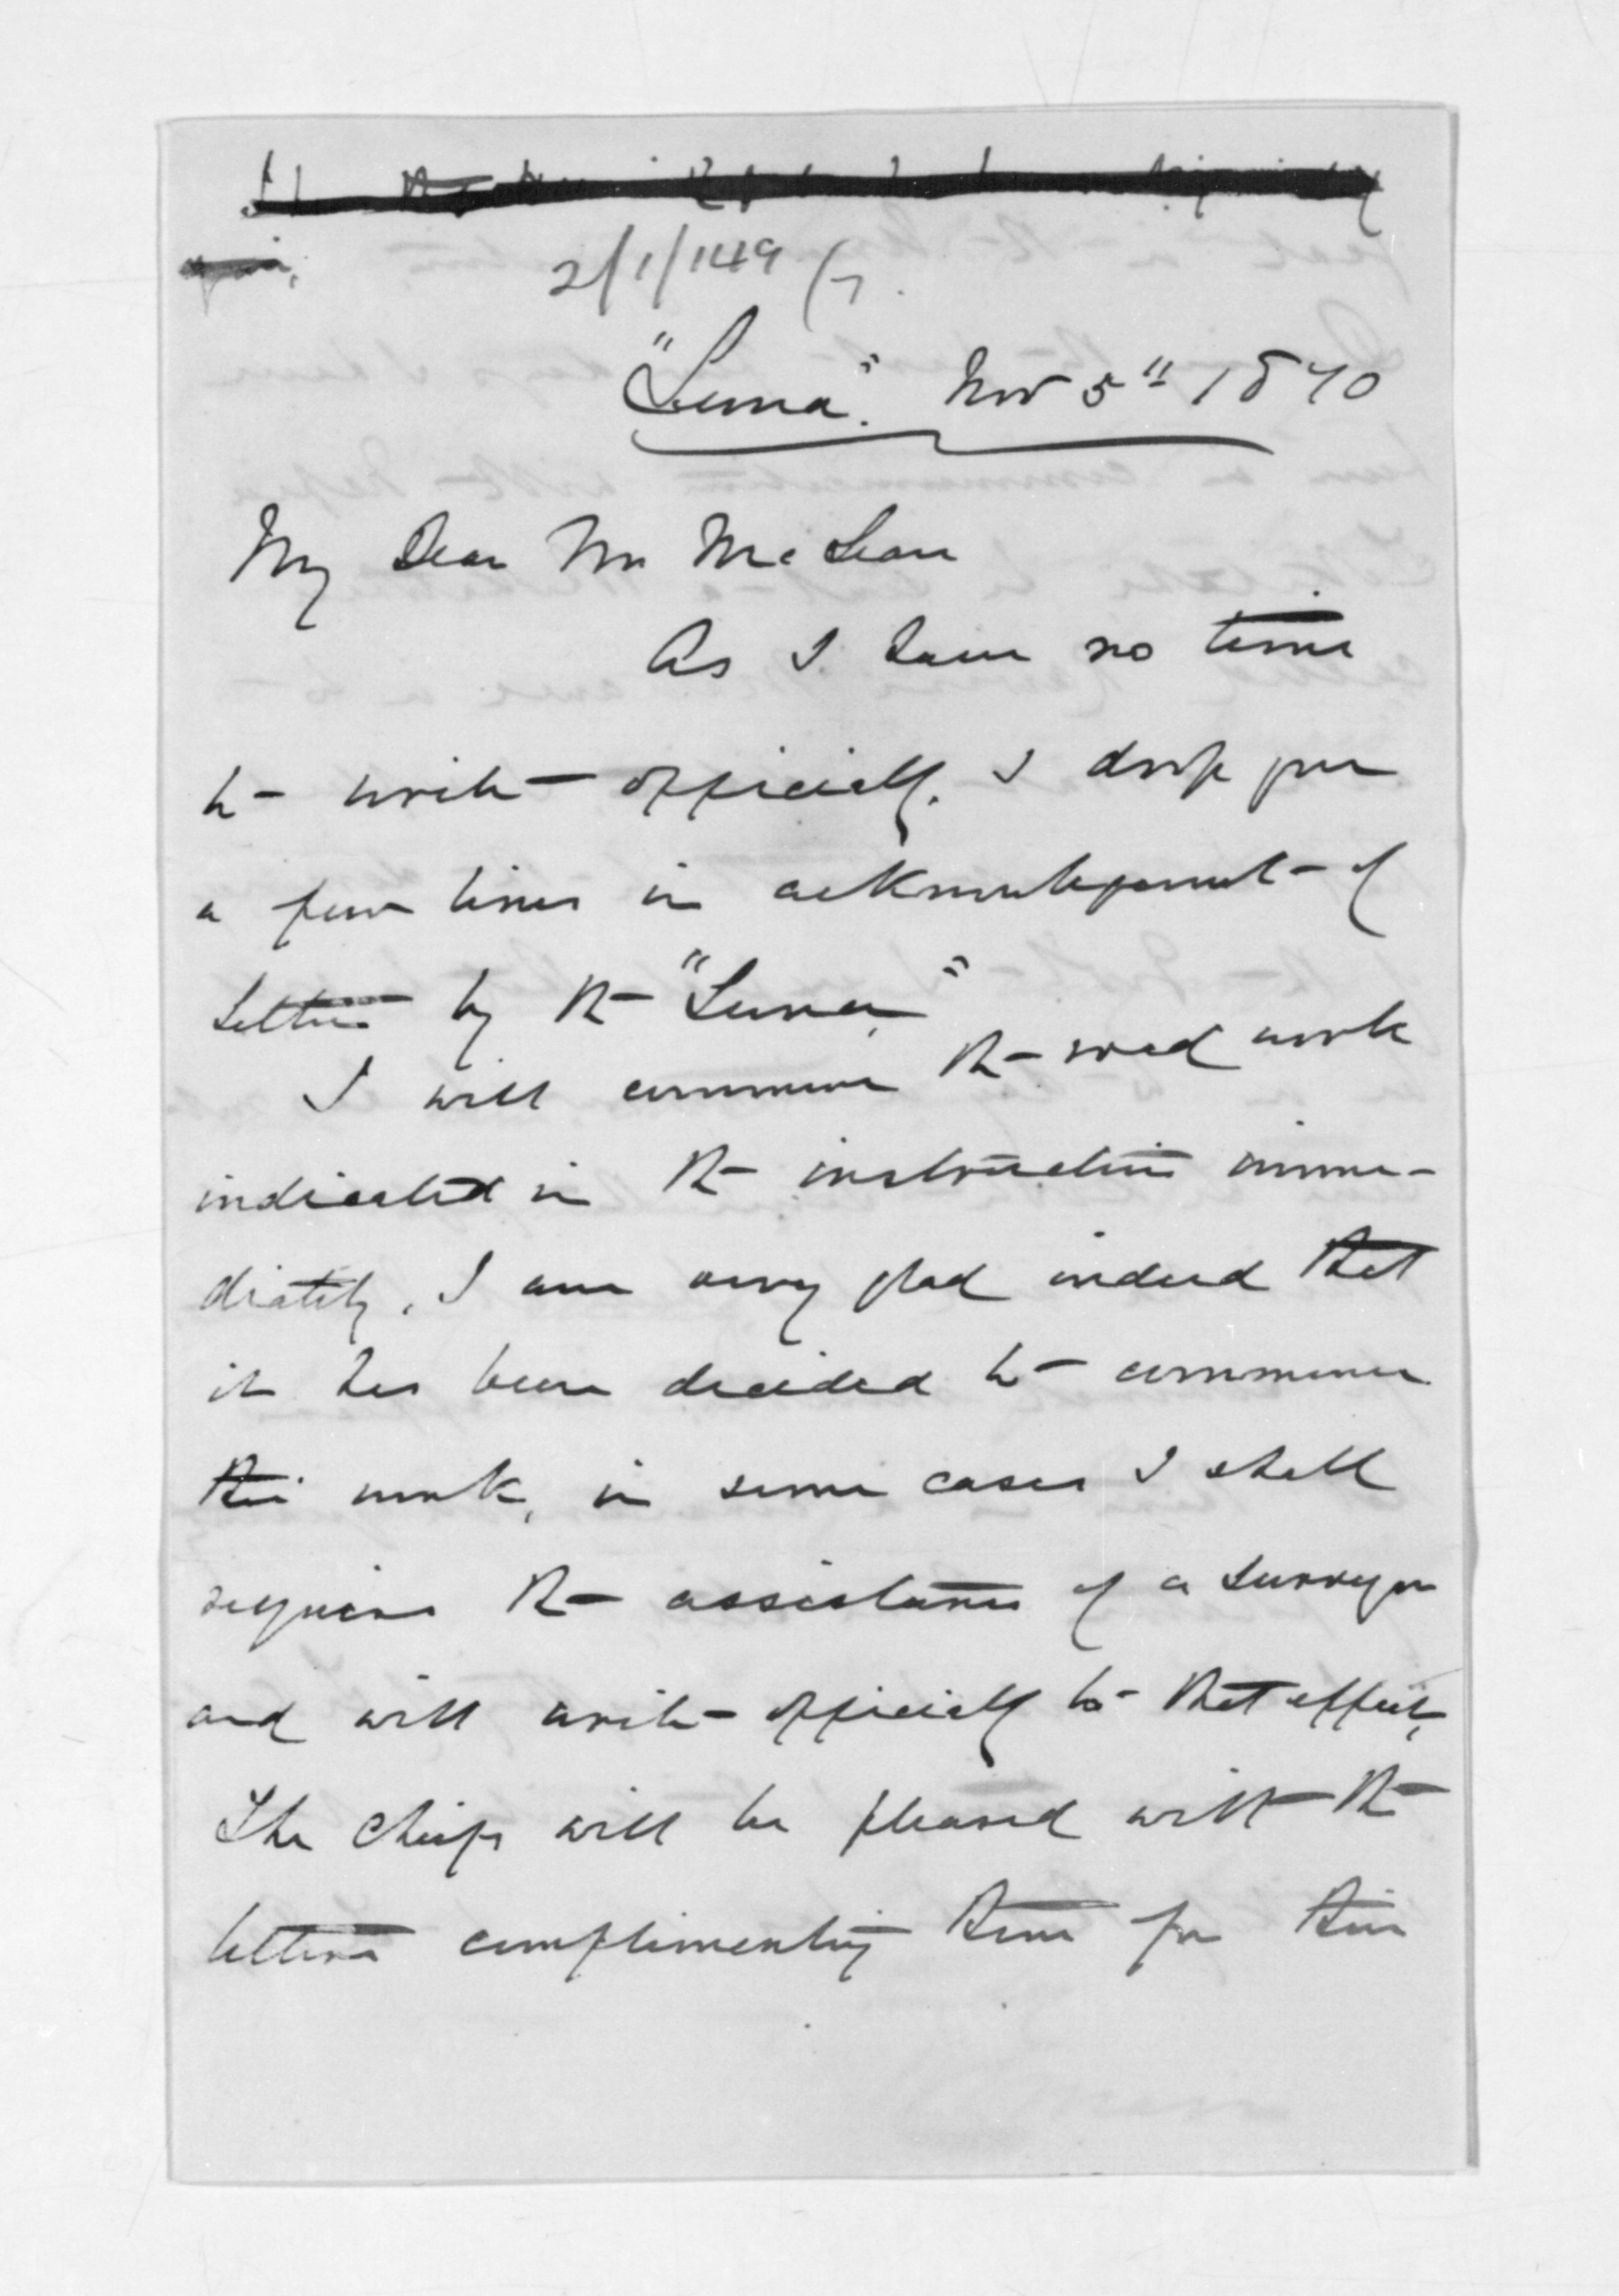 2/1/149
"Luna". Nov 5" 1870
My Dear Mr McLean
As I have no time
to write officially. I drop you
a few lines in acknowledgement of
letters by the "Luna,"
I will commence the road work
indicated in the instructions imme-
diately, I am very glad indeed that
it has been decided to commence
this work, in some cases I shall
require the assistance of a Surveyor
and will write officially to that effect,
The chiefs will be pleased with the
letters complimenting them for their